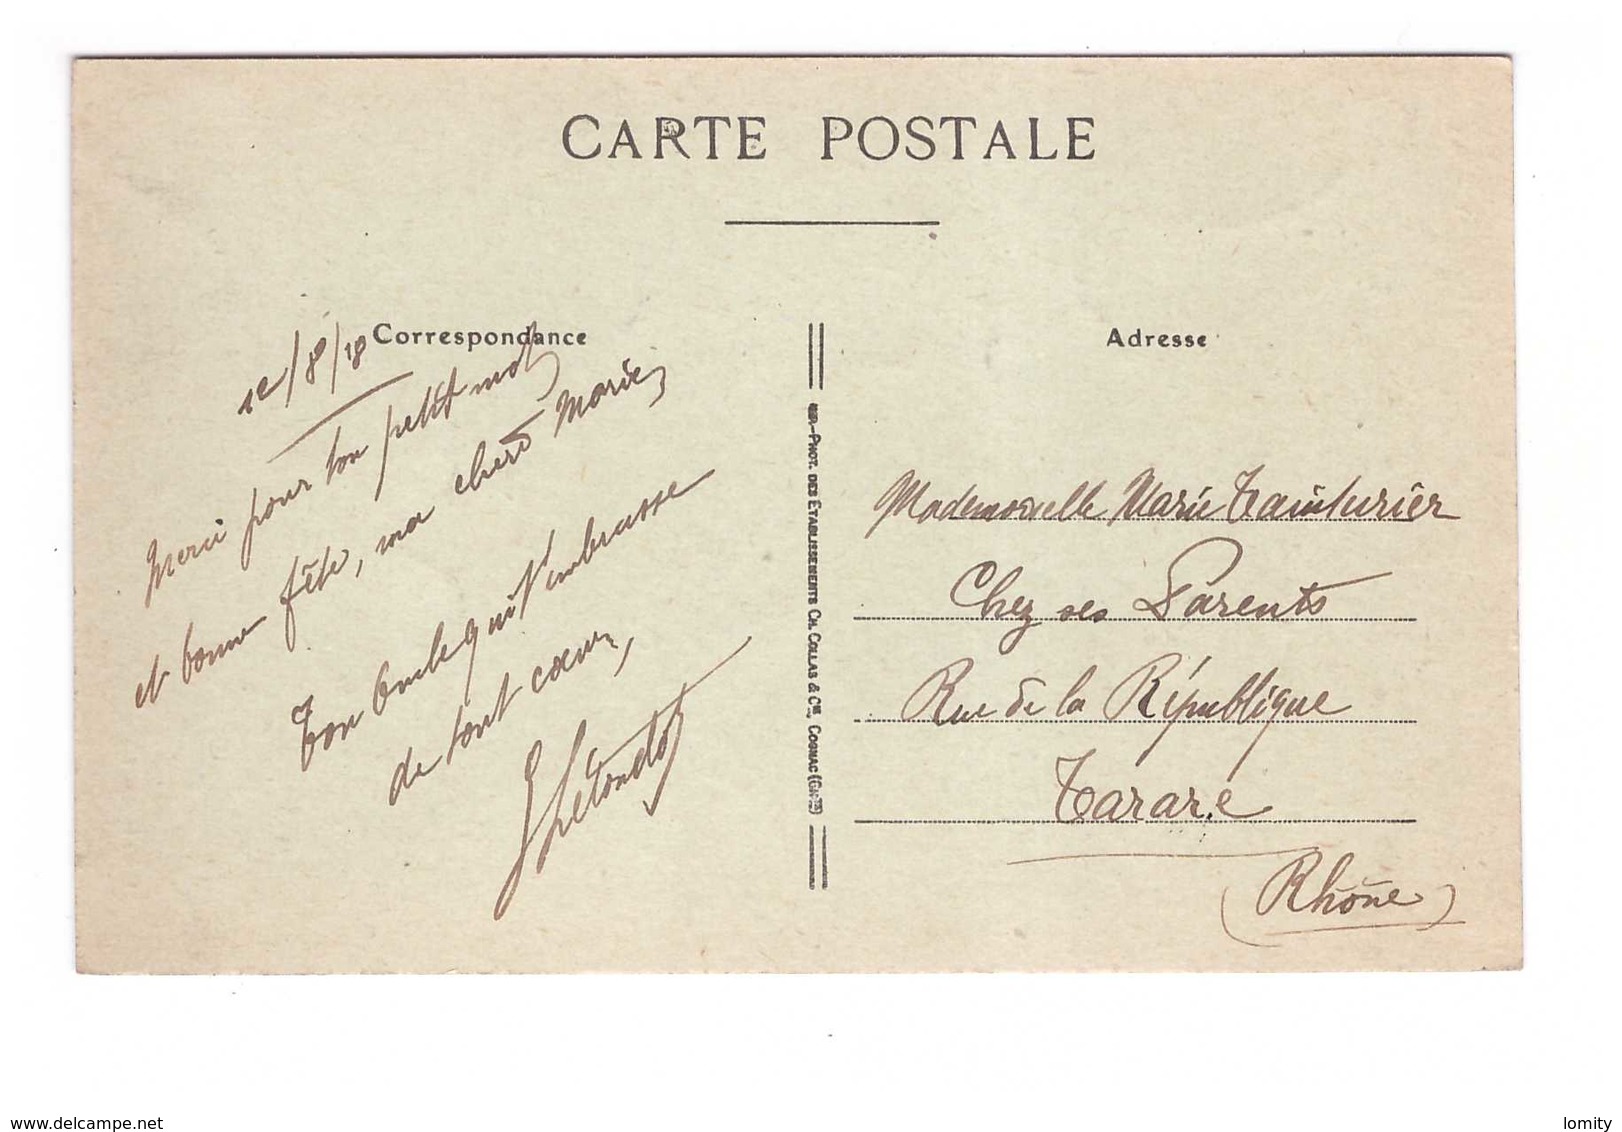 CARTE POSTALE
Correspondance
/8/18
Merci pour ton petit mot,
et bonne fête, ma chère Marie,
Ton Oncle qui t'embrasse
de tout cœur,
Adresse
PHOT. DES ETABLISSEMENTS CH. COLLAS & Cie, COGNAC
Mademoiselle Marie Tainturier
Chez ses Parents
Rue de la République
Tarare
(Rhône)
www.delcampe.net
lomity